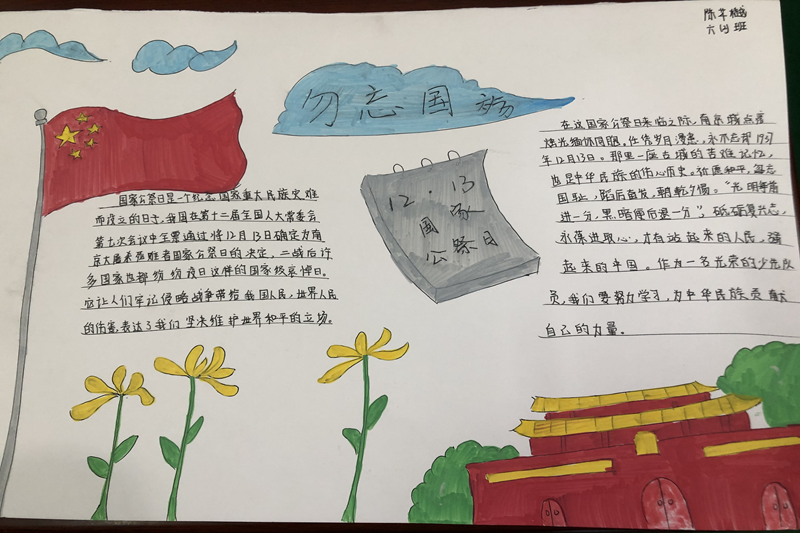 陈芊
六(4)班
勿忘国殇
国家公祭日是一个纪念国家重大民族灾难
而设立的日子,我国在第十二届全国人大常委会
第七次会议中全票通过将12月13日确定为南
京大屠杀遇难者国家公祭日的决定,二战后许
多国家也都纷纷设日这样的国家级哀悼日。
它让人们牢记侵略战争带给我国人民,世界人民
的伤害,表达了我们坚决维护世界和平的立场。
12.13
国家
公祭日
在这国家公祭日来临之际,南京城点亮
烛光缅怀同胞。任凭岁月漫患,永不忘却1937
年12月13日。那里一座古城的苦难记忆,
也是中华民族的伤心历史。祈愿和平,莫忘
国耻,蹈厉奋发,朝乾夕惕。"光明每前
进一分,黑暗便后退一分",砥砺复兴志,
永葆进取心,才有站起来的人民,强
起来的中国。作为一名光荣的少先队
员,我们要努力学习,为中华民族贡献
自己的力量。